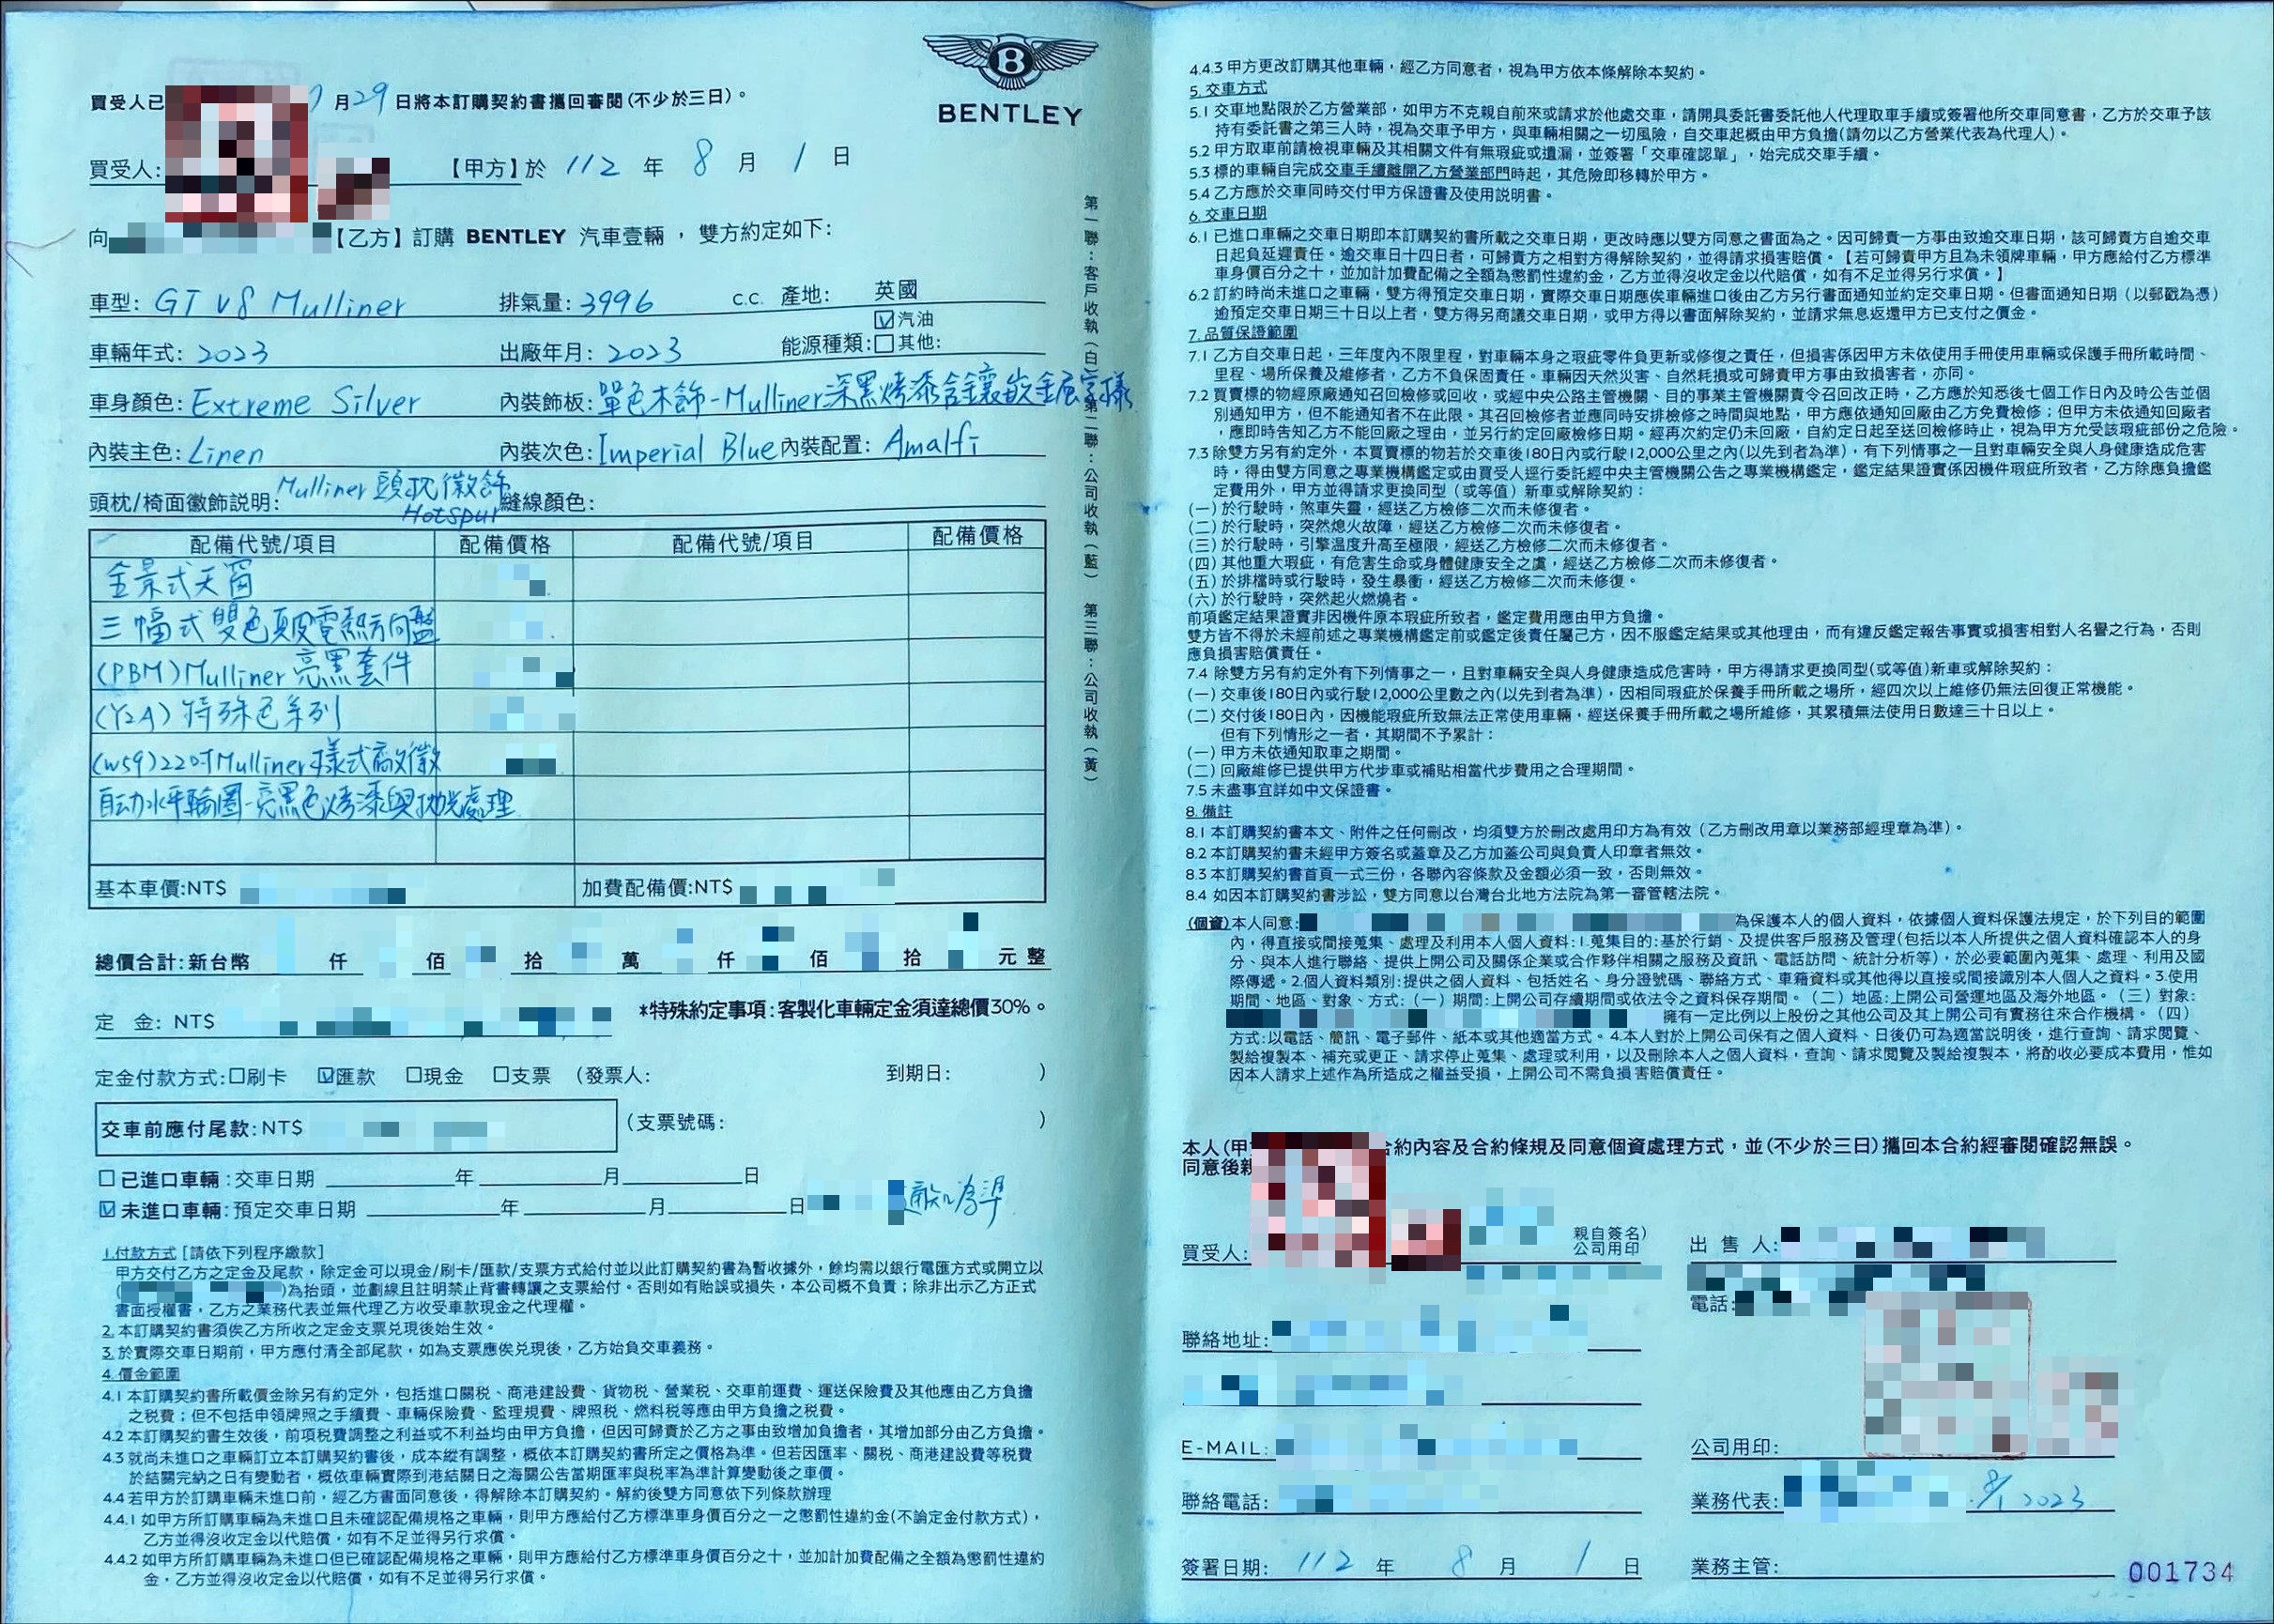 BENTLEY
買受人已 月29日將本訂購契約書攜回審閱(不少於三日)。
買受人: 【甲方】於 112 年 8 月 1 日
向 【乙方】訂購 BENTLEY 汽車壹輛，雙方約定如下:
車型: GT V8 Mulliner 排氣量: 3996 c.c. 產地: 英國
車輛年式: 2023 出廠年月: 2023 能源種類: ☑汽油 □其他:
車身顏色: Extreme Silver 內裝飾板: 單色木飾-Mulliner深黑烤漆含鑲嵌金屬
內裝主色: Linen 內裝次色: Imperial Blue 內裝配置: Amalfi
頭枕/椅面徽飾說明: Mulliner 頭枕徽飾 Hotspur 縫線顏色:
配備代號/項目 配備價格 配備代號/項目 配備價格
全景式天窗
三幅式雙色真皮電熱方向盤
(PBM)Mulliner 亮黑套件
(Y2A) 特殊色系列
(W59)22吋Mulliner樣式廠徽
自動水平輪圈-亮黑色烤漆與拋光處理
基本車價:NT$ 加費配備價:NT$
總價合計:新台幣 仟 佰 拾 萬 仟 佰 拾 元 整
定 金: NT$ *特殊約定事項:客製化車輛定金須達總價30%。
定金付款方式:□刷卡 ☑匯款 □現金 □支票 (發票人: 到期日: )
交車前應付尾款:NT$ (支票號碼: )
□已進口車輛:交車日期 年 月 日
☑未進口車輛:預定交車日期 年 月 日 通知為準
1.付款方式 [請依下列程序繳款]
甲方交付乙方之定金及尾款，除定金可以現金/刷卡/匯款/支票方式給付並以此訂購契約書為暫收據外，餘均需以銀行電匯方式或開立以
( )為抬頭，並劃線且註明禁止背書轉讓之支票給付。否則如有貽誤或損失，本公司概不負責；除非出示乙方正式
書面授權書，乙方之業務代表並無代理乙方收受車款現金之代理權。
2.本訂購契約書須俟乙方所收之定金支票兌現後始生效。
3.於實際交車日期前，甲方應付清全部尾款，如為支票應俟兌現後，乙方始負交車義務。
4.價金範圍
4.1 本訂購契約書所載價金除另有約定外，包括進口關稅、商港建設費、貨物稅、營業稅、交車前運費、運送保險費及其他應由乙方負擔
之稅費；但不包括申領牌照之手續費、車輛保險費、監理規費、牌照稅、燃料稅等應由甲方負擔之稅費。
4.2 本訂購契約書生效後，前項稅費調整之利益或不利益均由甲方負擔，但因可歸責於乙方之事由致增加負擔者，其增加部分由乙方負擔。
4.3 就尚未進口之車輛訂立本訂購契約書後，成本縱有調整，概依本訂購契約書所定之價格為準。但若因匯率、關稅、商港建設費等稅費
於結關完納之日有變動者，概依車輛實際到港結關日之海關公告當期匯率與稅率為準計算變動後之車價。
4.4 若甲方於訂購車輛未進口前，經乙方書面同意後，得解除本訂購契約。解約後雙方同意依下列條款辦理
4.4.1 如甲方所訂購車輛為未進口且未確認配備規格之車輛，則甲方應給付乙方標準車身價百分之一之懲罰性違約金(不論定金付款方式)，
乙方並得沒收定金以代賠償，如有不足並得另行求償。
4.4.2 如甲方所訂購車輛為未進口但已確認配備規格之車輛，則甲方應給付乙方標準車身價百分之十，並加計加費配備之全額為懲罰性違約
金，乙方並得沒收定金以代賠償，如有不足並得另行求償。
第一聯:客戶收執(白) 第二聯:公司收執(藍) 第三聯:公司收執(黃)
4.4.3 甲方更改訂購其他車輛，經乙方同意者，視為甲方依本條解除本契約。
5. 交車方式
5.1 交車地點限於乙方營業部，如甲方不克親自前來或請求於他處交車，請開具委託書委託他人代理取車手續或簽署他所交車同意書，乙方於交車予該
持有委託書之第三人時，視為交車予甲方，與車輛相關之一切風險，自交車起概由甲方負擔(請勿以乙方營業代表為代理人)。
5.2 甲方取車前請檢視車輛及其相關文件有無瑕疵或遺漏，並簽署「交車確認單」，始完成交車手續。
5.3 標的車輛自完成交車手續離開乙方營業部門時起，其危險即移轉於甲方。
5.4 乙方應於交車同時交付甲方保證書及使用說明書。
6. 交車日期
6.1 已進口車輛之交車日期即本訂購契約書所載之交車日期，更改時應以雙方同意之書面為之。因可歸責一方事由致逾交車日期，該可歸責方自逾交車
日起負延遲責任。逾交車日十四日者，可歸責方之相對方得解除契約，並得請求損害賠償。【若可歸責甲方且為未領牌車輛，甲方應給付乙方標準
車身價百分之十，並加計加費配備之全額為懲罰性違約金，乙方並得沒收定金以代賠償，如有不足並得另行求償。】
6.2 訂約時尚未進口之車輛，雙方得預定交車日期，實際交車日期應俟車輛進口後由乙方另行書面通知並約定交車日期。但書面通知日期(以郵戳為憑)
逾預定交車日期三十日以上者，雙方得另商議交車日期，或甲方得以書面解除契約，並請求無息返還甲方已支付之價金。
7. 品質保證範圍
7.1 乙方自交車日起，三年度內不限里程，對車輛本身之瑕疵零件負更新或修復之責任，但損害係因甲方未依使用手冊使用車輛或保護手冊所載時間、
里程、場所保養及維修者，乙方不負保固責任。車輛因天然災害、自然耗損或可歸責甲方事由致損害者，亦同。
7.2 買賣標的物經原廠通知召回檢修或回收，或經中央公路主管機關、目的事業主管機關責令召回改正時，乙方應於知悉後七個工作日內及時公告並個
別通知甲方，但不能通知者不在此限。其召回檢修者並應同時安排檢修之時間與地點，甲方應依通知回廠由乙方免費檢修；但甲方未依通知回廠者
，應即時告知乙方不能回廠之理由，並另行約定回廠檢修日期。經再次約定仍未回廠，自約定日起至送回檢修時止，視為甲方允受該瑕疵部份之危險。
7.3 除雙方另有約定外，本買賣標的物若於交車後180日內或行駛12,000公里之內(以先到者為準)，有下列情事之一且對車輛安全與人身健康造成危害
時，得由雙方同意之專業機構鑑定或由買受人逕行委託經中央主管機關公告之專業機構鑑定，鑑定結果證實係因機件瑕疵所致者，乙方除應負擔鑑
定費用外，甲方並得請求更換同型(或等值)新車或解除契約：
(一) 於行駛時，煞車失靈，經送乙方檢修二次而未修復者。
(二) 於行駛時，突然熄火故障，經送乙方檢修二次而未修復者。
(三) 於行駛時，引擎溫度升高至極限，經送乙方檢修二次而未修復者。
(四) 其他重大瑕疵，有危害生命或身體健康安全之虞，經送乙方檢修二次而未修復者。
(五) 於排檔時或行駛時，發生暴衝，經送乙方檢修二次而未修復。
(六) 於行駛時，突然起火燃燒者。
前項鑑定結果證實非因機件原本瑕疵所致者，鑑定費用應由甲方負擔。
雙方皆不得於未經前述之專業機構鑑定前或鑑定後責任屬己方，因不服鑑定結果或其他理由，而有違反鑑定報告事實或損害相對人名譽之行為，否則
應負損害賠償責任。
7.4 除雙方另有約定外有下列情事之一，且對車輛安全與人身健康造成危害時，甲方得請求更換同型(或等值)新車或解除契約：
(一) 交車後180日內或行駛12,000公里數之內(以先到者為準)，因相同瑕疵於保養手冊所載之場所，經四次以上維修仍無法回復正常機能。
(二) 交付後180日內，因機能瑕疵所致無法正常使用車輛，經送保養手冊所載之場所維修，其累積無法使用日數達三十日以上。
但有下列情形之一者，其期間不予累計：
(一) 甲方未依通知取車之期間。
(二) 回廠維修已提供甲方代步車或補貼相當代步費用之合理期間。
7.5 未盡事宜詳如中文保證書。
8. 備註
8.1 本訂購契約書本文、附件之任何刪改，均須雙方於刪改處用印方為有效(乙方刪改用章以業務部經理章為準)。
8.2 本訂購契約書未經甲方簽名或蓋章及乙方加蓋公司與負責人印章者無效。
8.3 本訂購契約書首頁一式三份，各聯內容條款及金額必須一致，否則無效。
8.4 如因本訂購契約書涉訟，雙方同意以台灣台北地方法院為第一審管轄法院。
(個資)本人同意: 為保護本人的個人資料，依據個人資料保護法規定，於下列目的範圍
內，得直接或間接蒐集、處理及利用本人個人資料:1.蒐集目的:基於行銷、及提供客戶服務及管理(包括以本人所提供之個人資料確認本人的身
分、與本人進行聯絡、提供上開公司及關係企業或合作夥伴相關之服務及資訊、電話訪問、統計分析等)，於必要範圍內蒐集、處理、利用及國
際傳遞。2.個人資料類別:提供之個人資料、包括姓名、身分證號碼、聯絡方式、車籍資料或其他得以直接或間接識別本人個人之資料。3.使用
期間、地區、對象、方式:(一) 期間:上開公司存續期間或依法令之資料保存期間。(二) 地區:上開公司營運地區及海外地區。(三) 對象:
擁有一定比例以上股份之其他公司及其上開公司有實務往來合作機構。(四)
方式:以電話、簡訊、電子郵件、紙本或其他適當方式。4.本人對於上開公司保有之個人資料、日後仍可為適當說明後，進行查詢、請求閱覽、
製給複製本、補充或更正、請求停止蒐集、處理或利用，以及刪除本人之個人資料，查詢、請求閱覽及製給複製本，將酌收必要成本費用，惟如
因本人請求上述作為所造成之權益受損，上開公司不需負損害賠償責任。
本人(甲 合約內容及合約條規及同意個資處理方式，並(不少於三日)攜回本合約經審閱確認無誤。
同意後親
買受人: 親自簽名) 公司用印 出 售 人:
電話:
聯絡地址:
E-MAIL: 公司用印:
聯絡電話: 業務代表: 8/1 2023
簽署日期: 112 年 8 月 1 日 業務主管:
001734